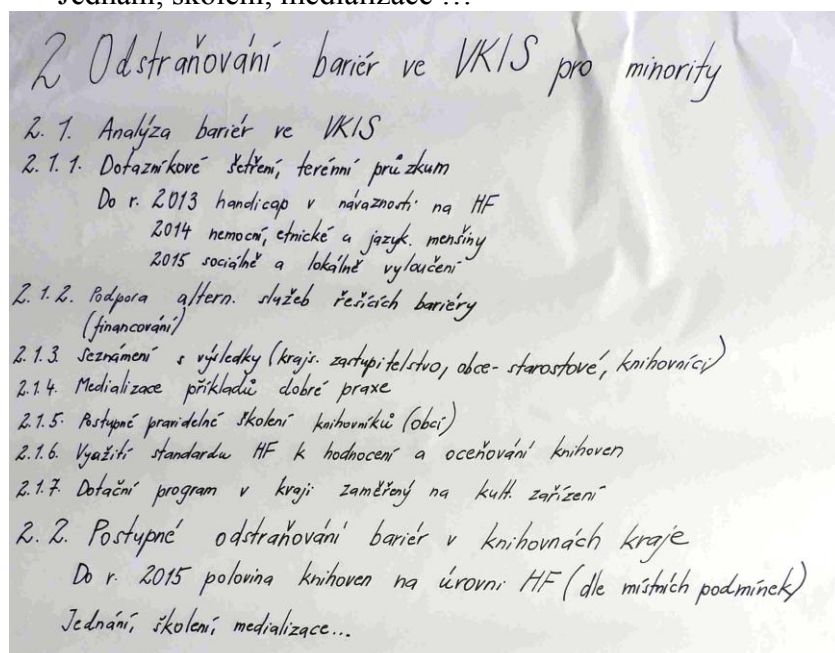 Jednání, školení, medializace …
2 Odstraňování bariér ve VKIS pro minority
2.1. Analýza bariér ve VKIS
2.1.1. Dotazníkové šetření, terénní průzkum
Do r. 2013 handicap v návaznosti na HF
2014 nemocní, etnické a jazyk. menšiny
2015 sociálně a lokálně vyloučení
2.1.2. Podpora altern. služeb řešících bariéry
(financování)
2.1.3. Seznámení s výsledky (krajs. zastupitelstvo, obce - starostové, knihovníci)
2.1.4. Medializace příkladů dobré praxe
2.1.5. Postupné pravidelné školení knihovníků (obcí)
2.1.6. Využití standardu HF k hodnocení a oceňování knihoven
2.1.7. Dotační program v kraji zaměřený na kult. zařízení
2.2. Postupné odstraňování bariér v knihovnách kraje
Do r. 2015 polovina knihoven na úrovni HF (dle místních podmínek)
Jednání, školení, medializace...